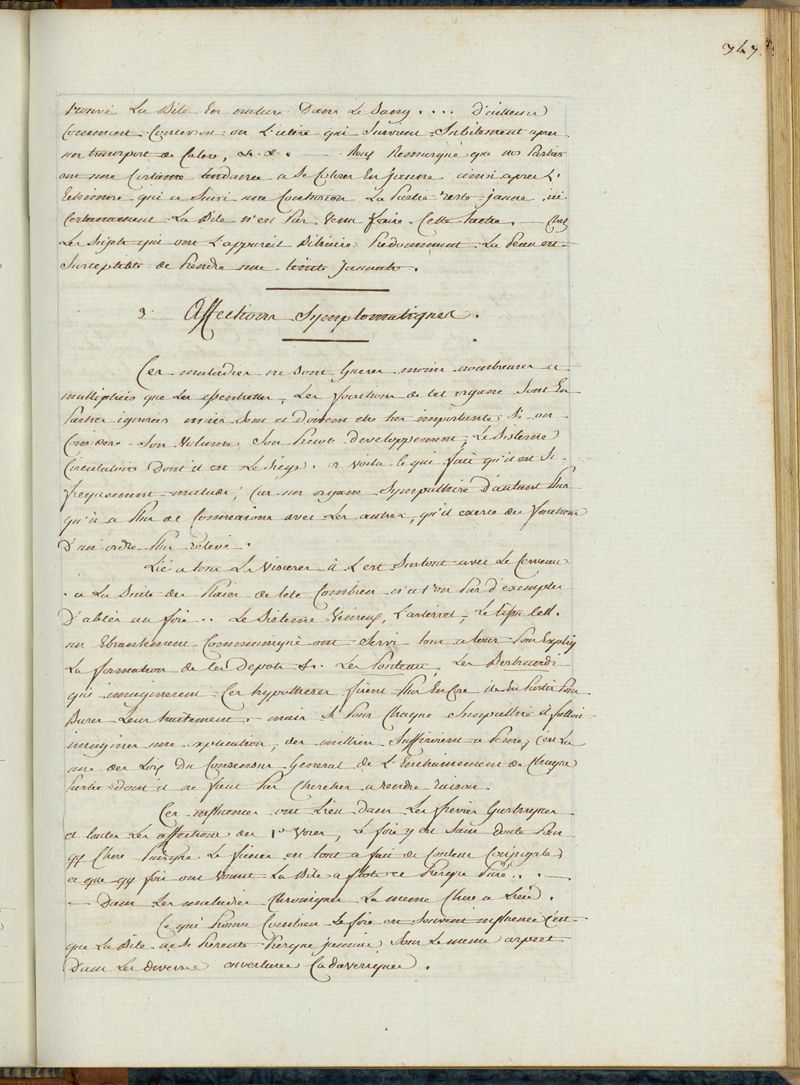 347
trouvé La Bile En nature Dans Le Sang .... d'ailleurs
Comment Concevoir on L'ictère qui Survient Subitement après
un transport de Colere, &. &. — Nous Remarqué que nos Parties
ont une Certaine tendance a Se Colorer En Jaune ainsi apres L'
Ecchimose qui a Suivi une Contusion La Partie reste jaune ici
Certainement La Bile n'est Pas Venu faire Cette tache. — Chez
Les Sujets qui ont L'appareil Biliaire Prédominant La Peau est
Susceptible de Prendre une teinte Jaunatre.
3. Affections Symptomatiques.
Ces maladies ne Sont Gueres moins nombreuses et
multipliées que Les essentielles, Les fonctions de cet organe Sont En
Partie ignorées mais Sont et doivent etre tres importants Si on
Considere Son Volume, Son Prompt developpement, Le Sisteme
Circulatoire Dont il est Le Siege. Voila Ce qui fait qu'il est Si
frequemment malade; Car un organe Sympathise D'autant Plus
qu'il a Plus de Connexions avec Les autres, qu'il exerce des fonctions
D'un ordre Plus relevé.
Lié a tous Les Visceres il L'est Surtout avec Le Cerveau
a La Suite des Plaies de tete Combien n'a t'on Pas d'exemples
D'abcès au foie.. Le Sisteme Veineux, L'arteriel, Le tissu Cell.
un Ebranlement Communiqué ont Servi tour a tour Pour Expliq
La formation de Ces Depots &. Les Pouteau, Les Bertrandi
qui imaginerent Ces hypotheses firent Plus Encore ils En Partir Pour
Baser Leur traitement. mais Si Pour Chaque Simpathie il falloit
imaginer une explication, des milliers Suffiroient a Peine, C'est La
une des Lois Du Consensus General de L'Enchainement de Chaque
Partie dont il ne faut Pas Chercher a rendre raison.
Ces influences ont Lieu Dans Les fievres Gastriques
et toutes Les affections des 1eres Voies, Le foie y est Sans doute Pour
qq Chose Puisque Le fieces en tout a fait de Couleur
et que qq fois on Vomit La Bile a flots et Presque Pure..
— Dans Les maladies Chroniques La meme Chose a Lieu.
Ce qui Prouve Combien Le foie est Souvent influencé C'est
que La Bile ne Se Presente Presque jamais Sous Le meme aspect
Dans Les diverses ouvertures Cadaveriques.